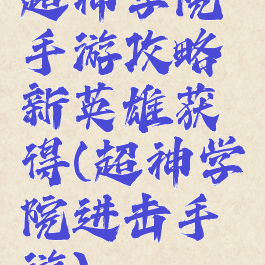 超神学院
手游攻略
新英雄获
得(超神学
院进击手
游)